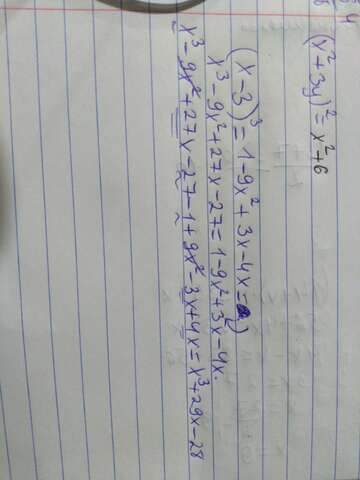 (x² + 3y)² = x² + 6
(x - 3)³ = 1 - 9x² + 3x - 4x =)
x³ - 9x² + 27x - 27 = 1 - 9x² + 3x - 4x.
x³ - 9x² + 27x - 27 - 1 + 9x² - 3x + 4x = x³ + 29x - 28